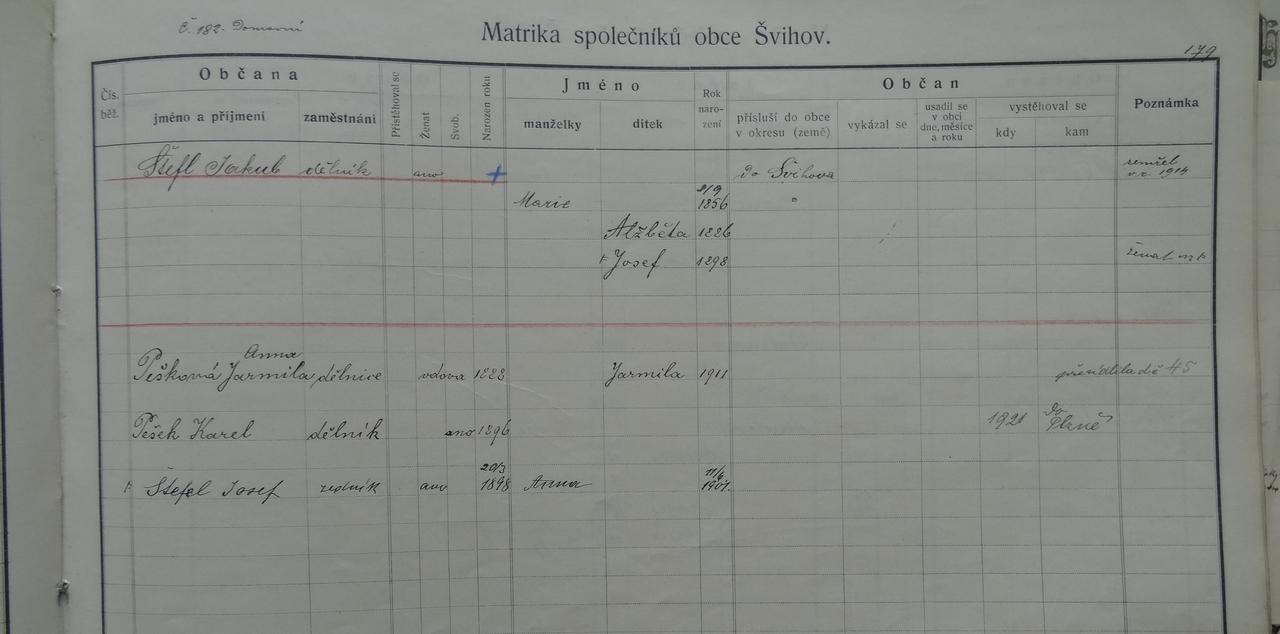 č. 182. Domovní
Matrika společníků obce Švihov.
179
Čís. běž.
Občana
jméno a příjmení
zaměstnání
Přistěhoval se
Ženat
Svob.
Narozen roku
Jméno
manželky
dítek
Rok naro- zení
Občan
přísluší do obce v okresu (země)
vykázal se
usadil se v obci dne, měsíce a roku
vystěhoval se
kdy
kam
Poznámka
Štefl Jakub dělník ano + do Švihova zemřel v r. 1914
Marie 8/9 1856 "
Alžběta 1886
Josef 1898 ženat
Anna
Pešková Jarmila dělnice vdova 1888 Jarmila 1911 45
Pešek Karel dělník ano 1896 1921 do Plzně
Štefel Josef zedník ano 20/3 1898 Anna 11/6 1901.